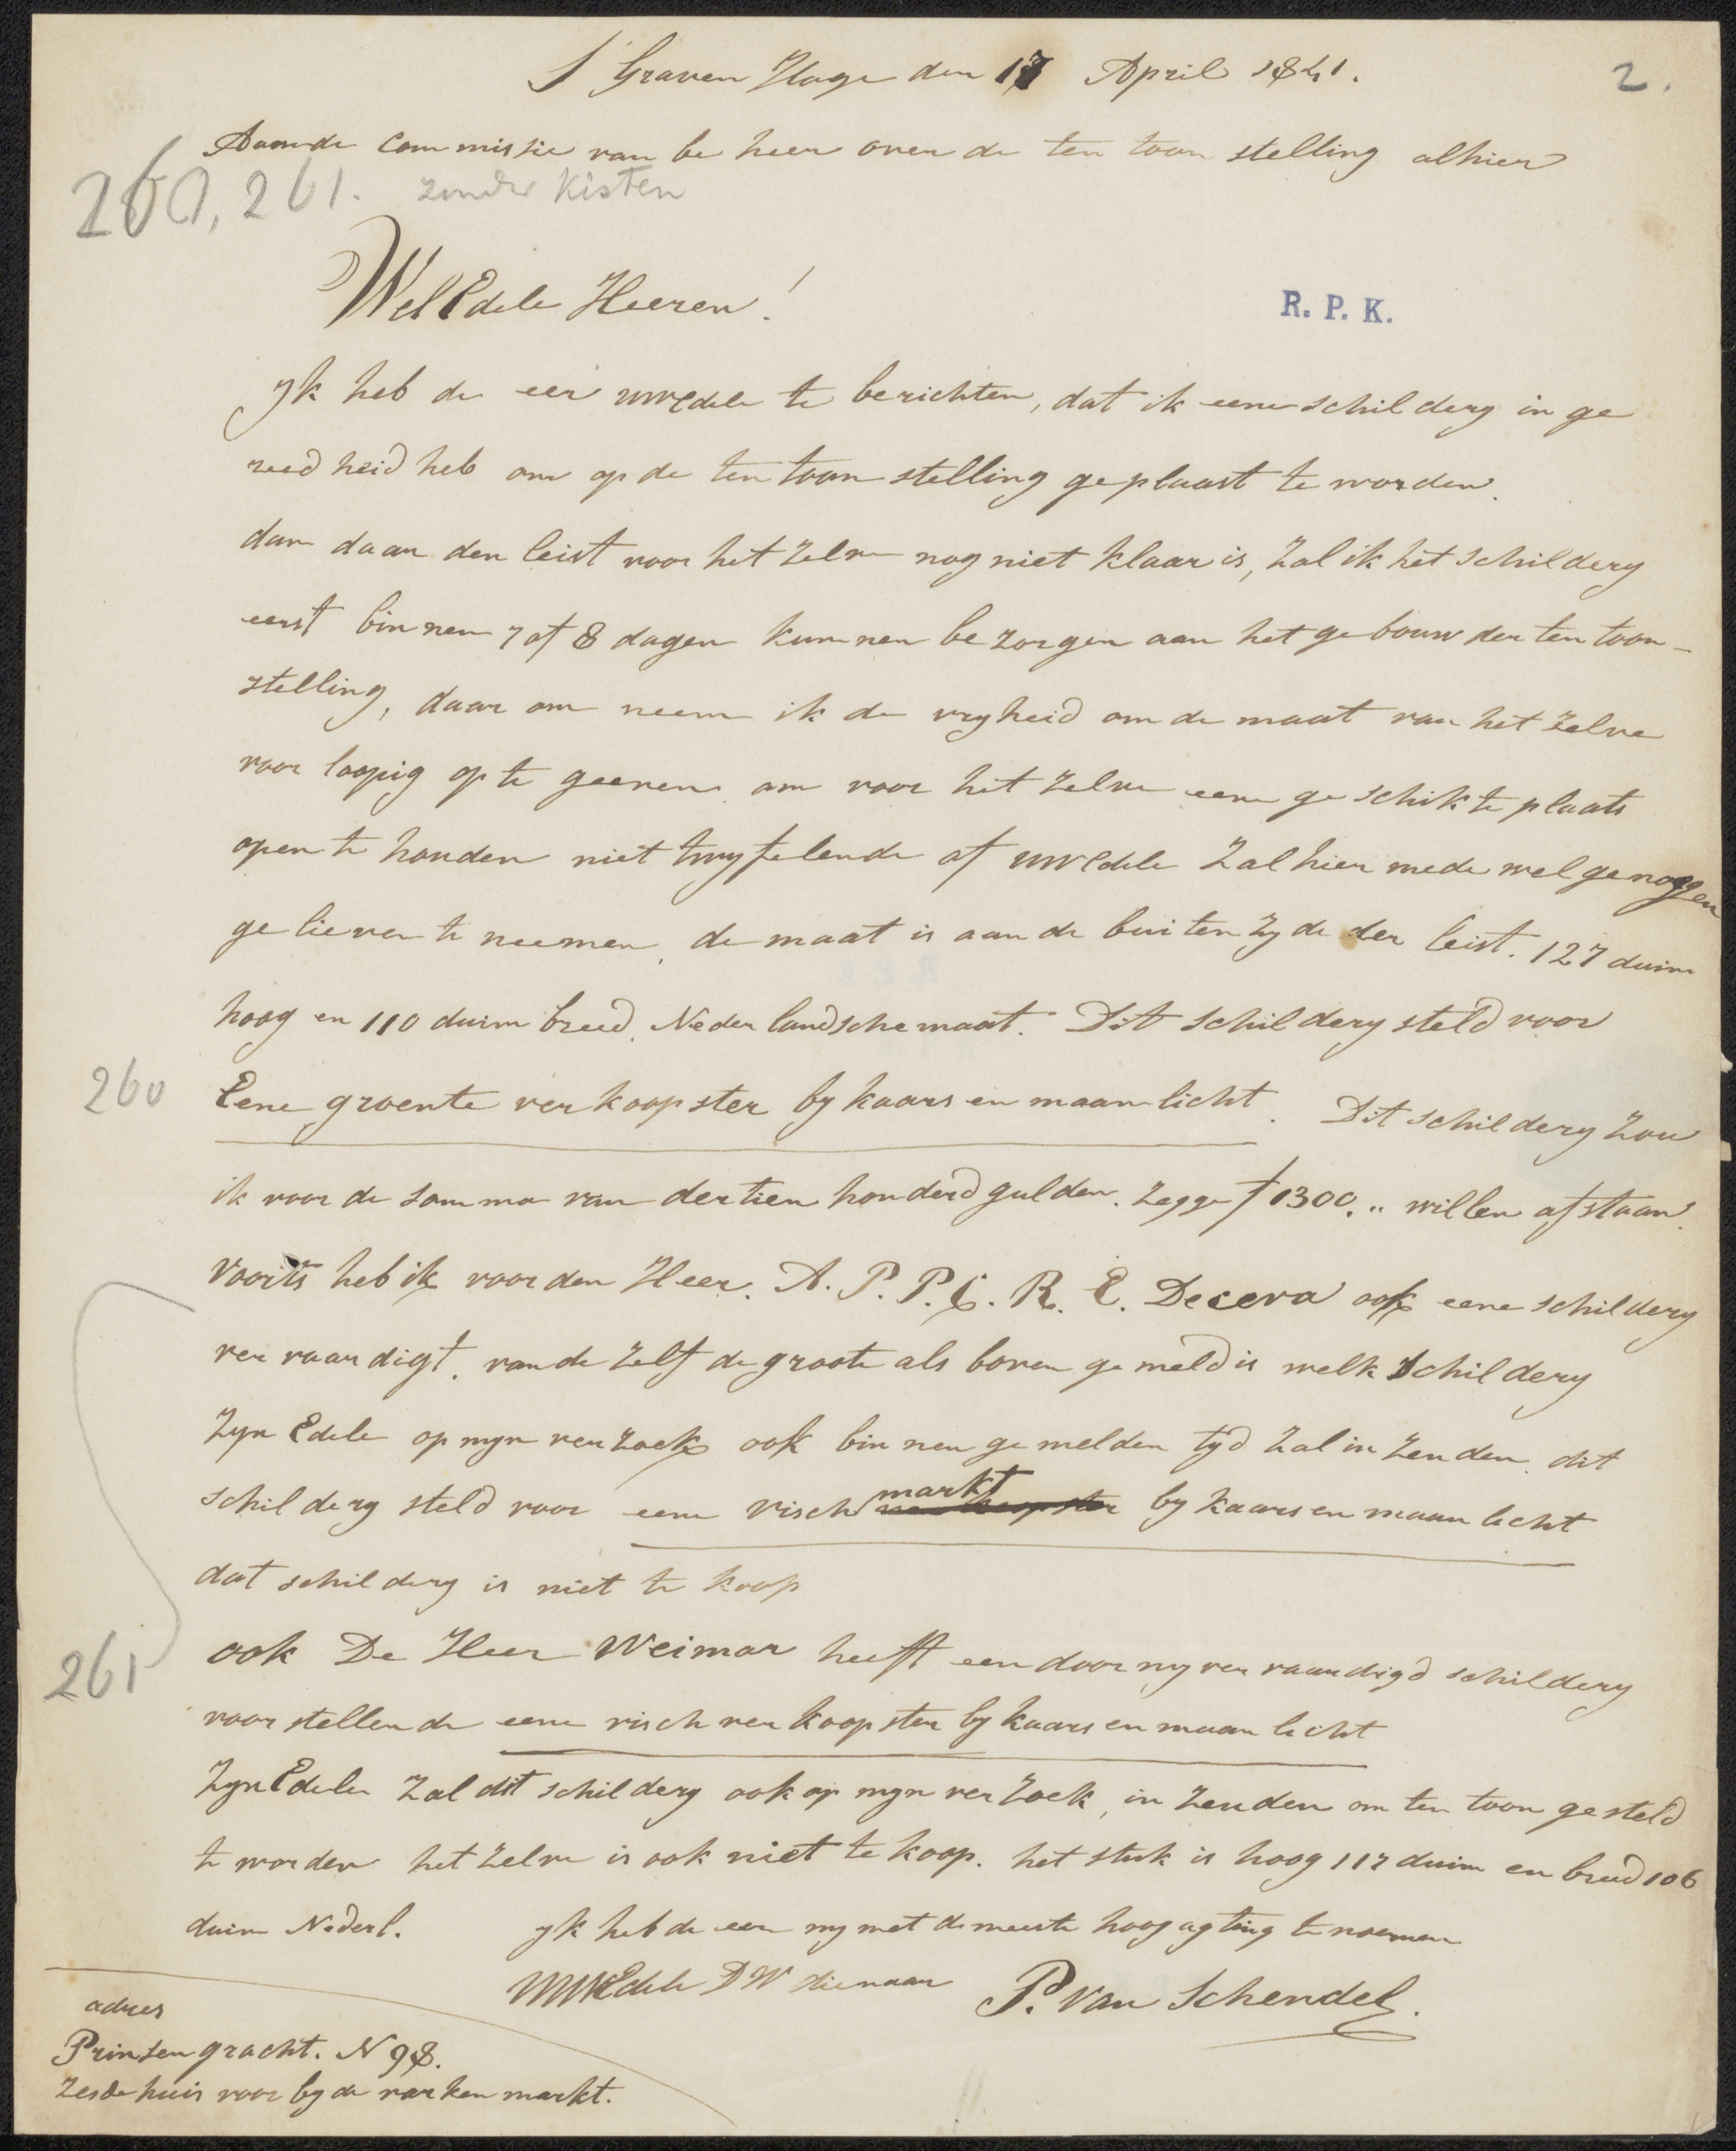 S Graven Hage den 17 April 1841.
2.
Aan de Commissie van be heer over de ten toon stelling alhier
260, 261. zonder kisten
WelEdele Heeren!
R. P. K.
Ik heb de eer uwEdele te berichten, dat ik eene schildery in ge
reed heid heb om op de ten toon stelling geplaast te worden.
dan daar den leist voor het zelve nog niet klaar is, zal ik het schildery
eerst binnen 7 of 8 dagen kunnen be zorgen aan het gebouw der ten toon-
stelling, daar om neem ik de vryheid om de maat van het zelve
voor loopig op te geeven om voor het zelve eene ge schikte plaats
open te houden niet twyfelende of uwEdele zal hier mede wel genoegen
ge lieven te neemen, de maat is aan de buiten zyde der leist. 127 duim
hoog en 110 duim breed. Neder landsche maat. Dit schildery steld voor
260
Eene groente ver koopster by kaars en maan licht. Dit schildery zou
ik voor de somma van dertien honderd gulden. zegge f 1300. „ willen afstaan.
Voorts heb ik voor den Heer. A. P. P. C. R. E. Deceva ook eene schildery
ver vaardigt, van de zelf de groote als boven ge meld is welk schildery
zyn Edele op myn ver zoek ook bin nen ge melden tyd zal in zenden. dit
schildery steld voor eene visch markt by kaars en maan licht
dat schildery is niet te koop
261
ook De Heer Weimar heeft een door my ver vaardigd schildery
voor stellende eene visch ver koopster by kaars en maan licht
zyn Edele zal dit schildery ook op myn ver zoek, in zenden om ten toon gesteld
te worden het zelve is ook niet te koop. het stuk is hoog 117 duim en breed 106
duim Nederl. Ik heb de eer my met de meeste hoog agting te noemen
UWEdele DW dienaar P. Van Schendel.
adres
Prinsen gracht. N 98.
zesde huis voor by de varken markt.